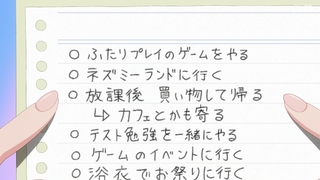 ○ ふたりプレイのゲームをやる
○ ネズミーランドに行く
○ 放課後 買い物して帰る
↳ カフェとかも寄る
○ テスト勉強を一緒にやる
○ ゲームのイベントに行く
○ 浴衣でお祭りに行く